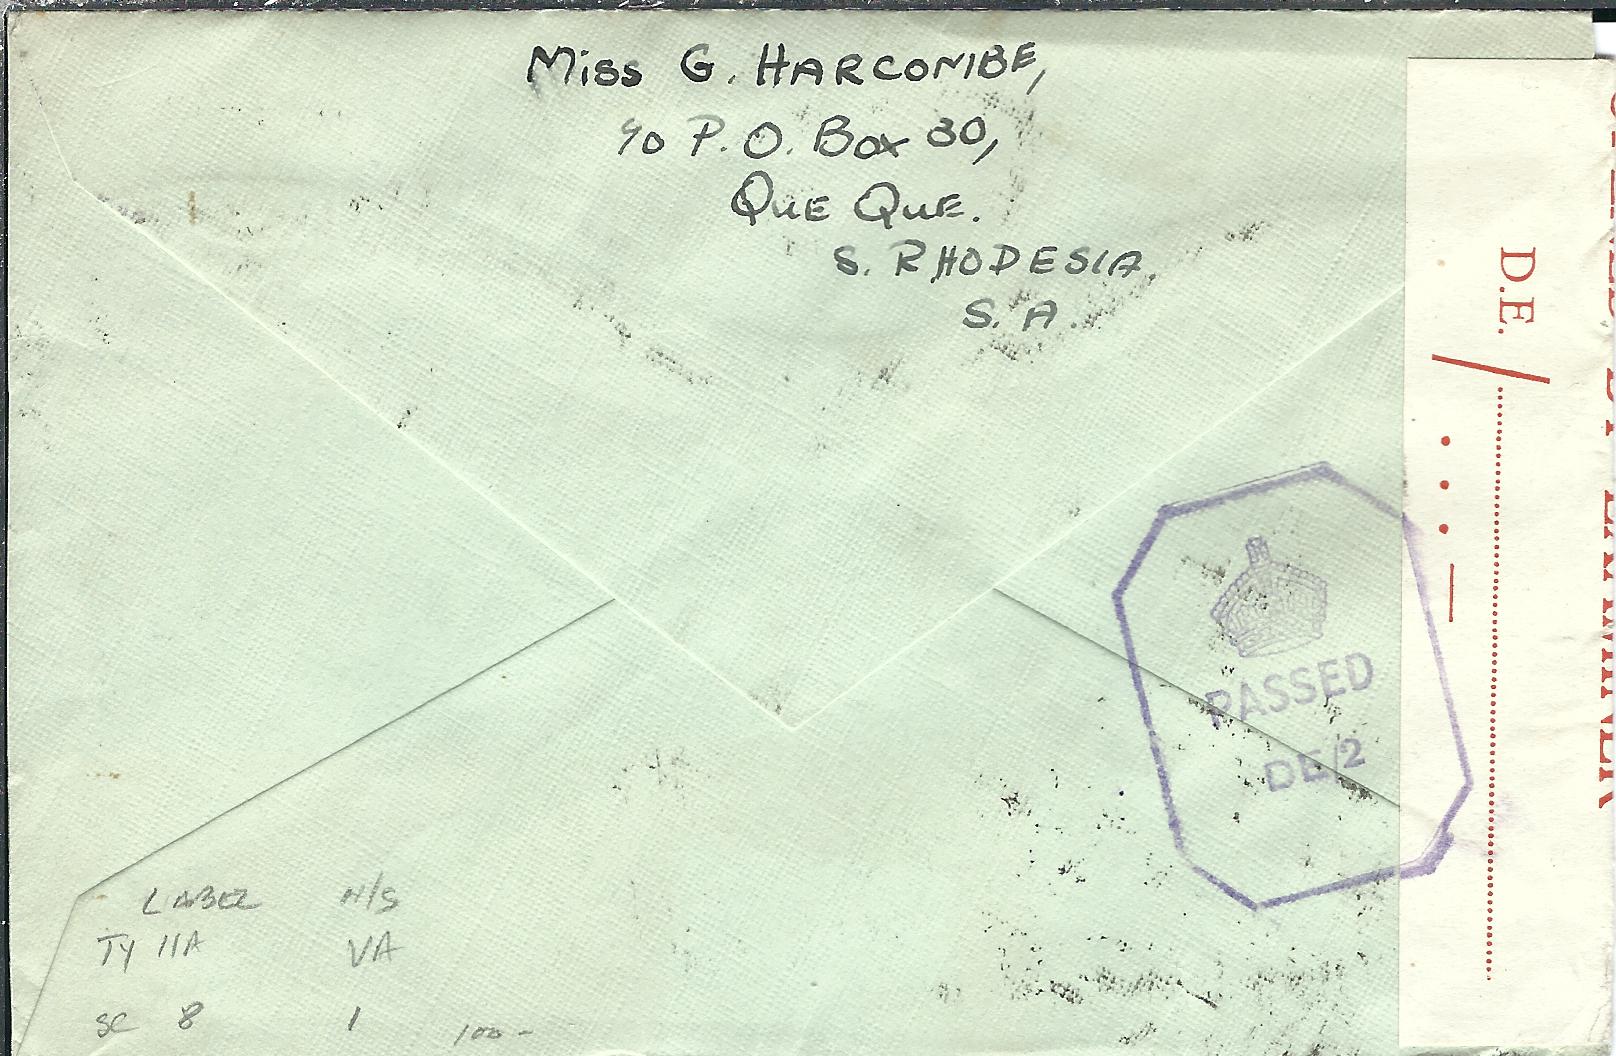 Miss G. HARCOMBE,
c/o P.O. Box 30,
QUE QUE.
S. RHODESIA,
S. A.
D.E. /
OPENED BY EXAMINER
PASSED
DE/2
LABEL H/S
TY IIA VA
SC 8 1 100-